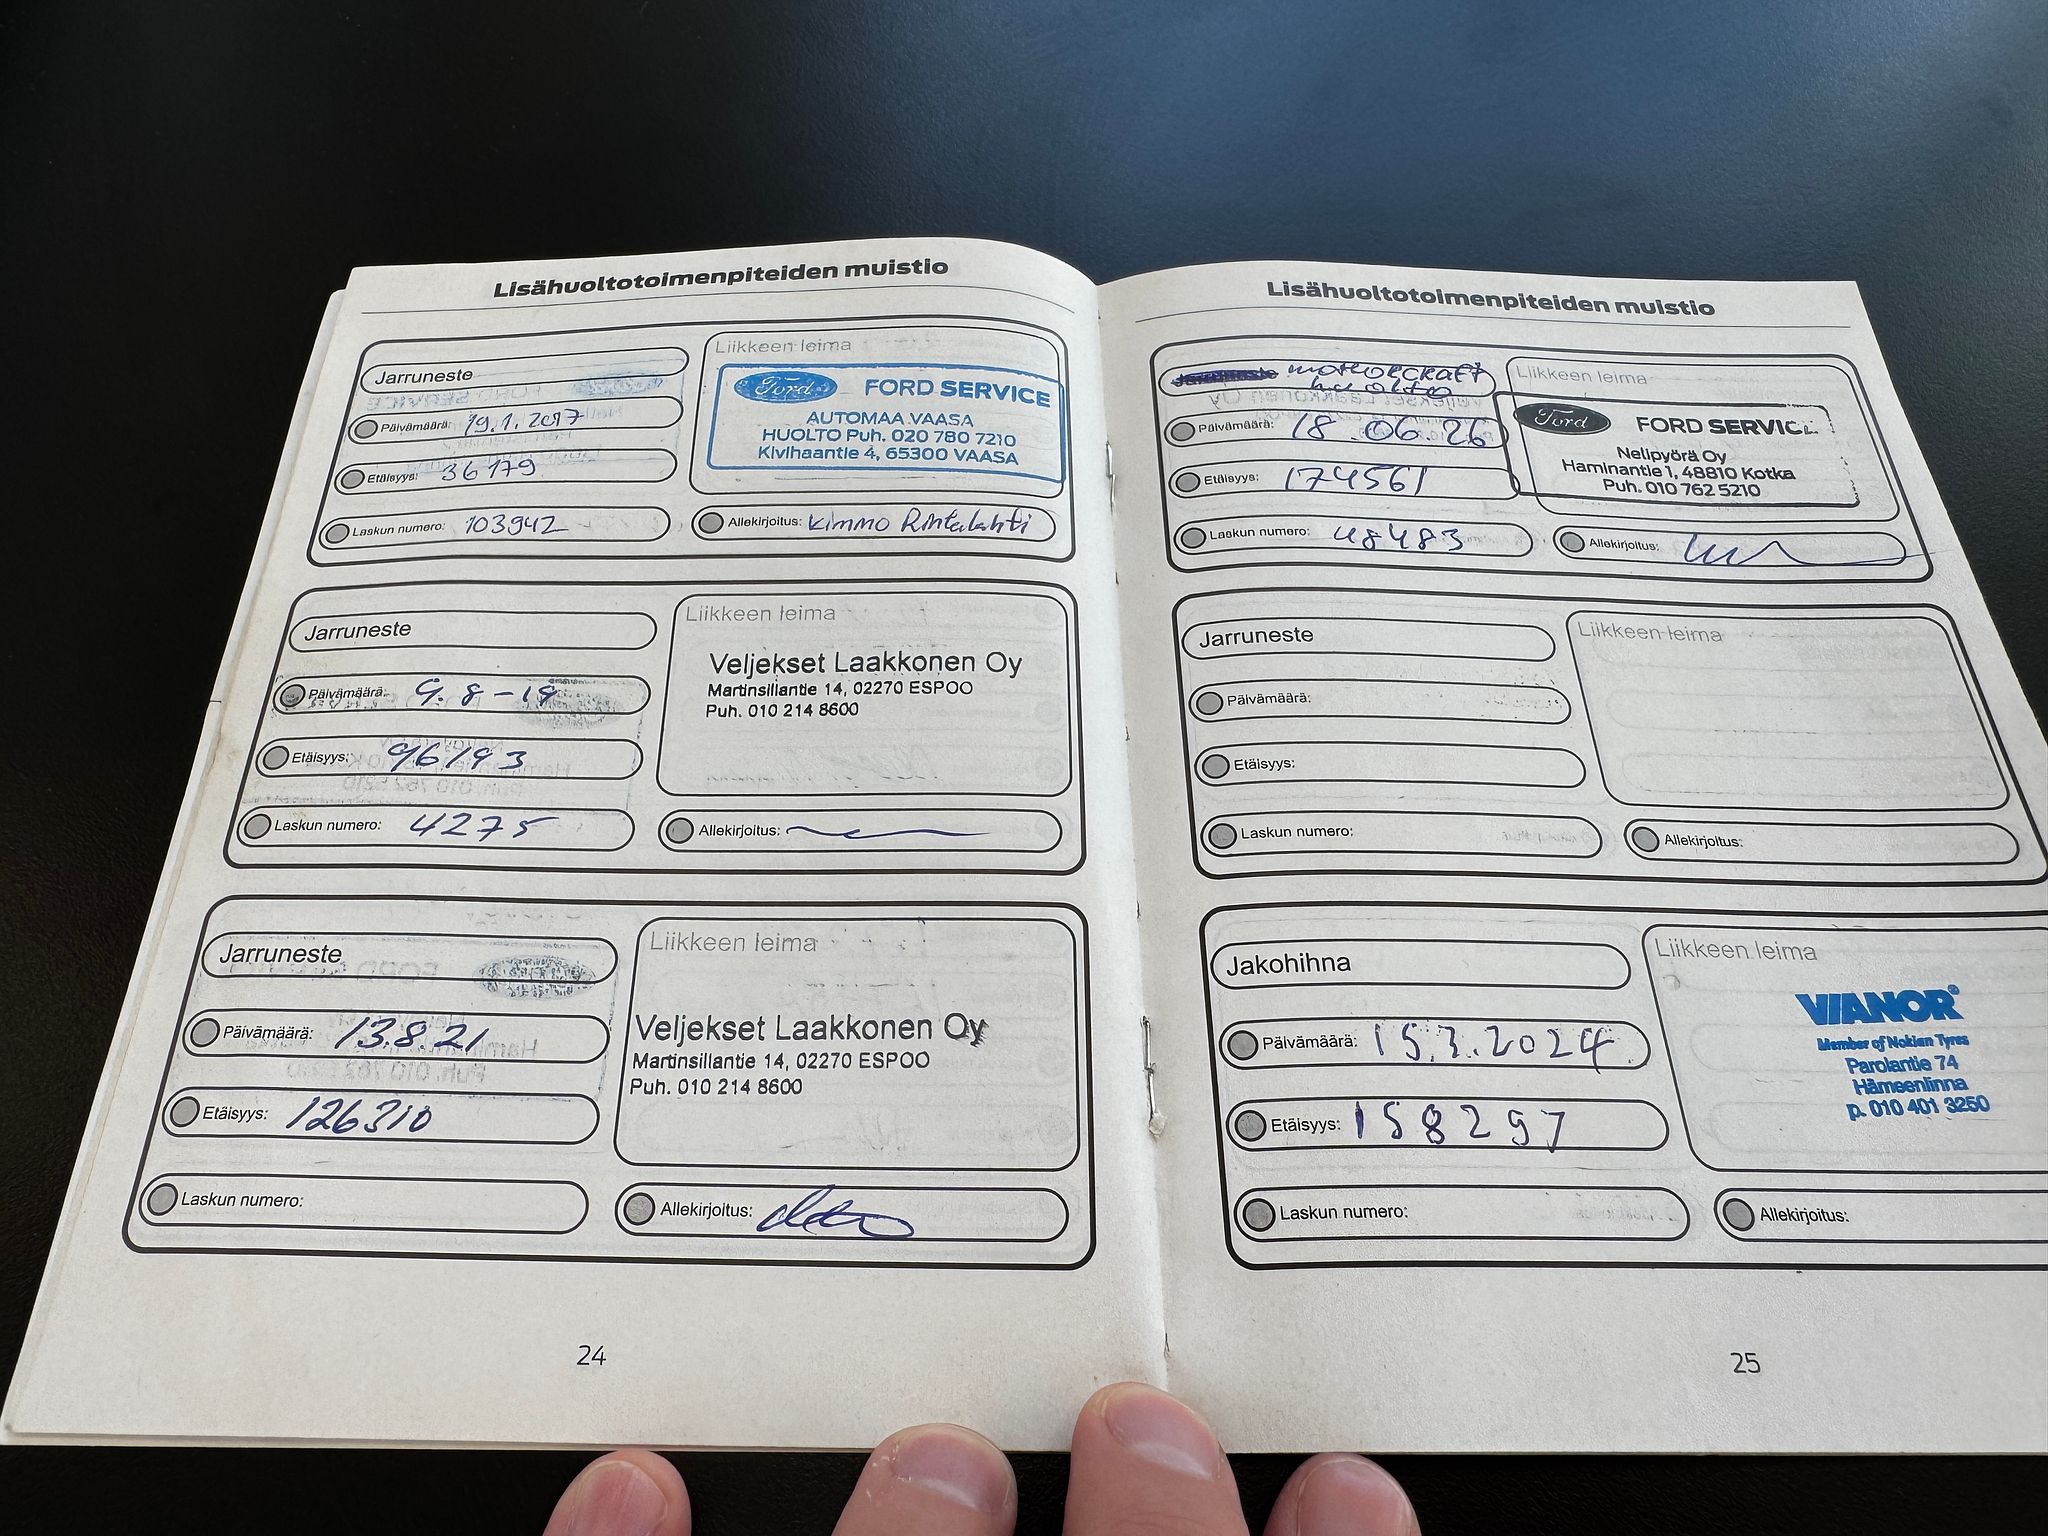 Lisähuoltotoimenpiteiden muistio
Jarruneste
Päivämäärä: 19.1.2017
Etäisyys: 36179
Laskun numero: 103942
Liikkeen leima
Ford FORD SERVICE
AUTOMAA VAASA
HUOLTO Puh. 020 780 7210
Kivihaantie 4, 65300 VAASA
Allekirjoitus: Kimmo Rintalahti
Jarruneste
Päivämäärä: 9.8-19
Etäisyys: 96193
Laskun numero: 4275
Liikkeen leima
Veljekset Laakkonen Oy
Martinsillantie 14, 02270 ESPOO
Puh. 010 214 8600
Allekirjoitus:
Jarruneste
Päivämäärä: 13.8.21
Etäisyys: 126310
Laskun numero:
Liikkeen leima
Veljekset Laakkonen Oy
Martinsillantie 14, 02270 ESPOO
Puh. 010 214 8600
Allekirjoitus:
24
Lisähuoltotoimenpiteiden muistio
Jarruneste motorcraft
huolto
Päivämäärä: 18.06.26
Etäisyys: 174561
Laskun numero: 48483
Liikkeen leima
Ford FORD SERVICE
Nelipyörä Oy
Haminantie 1, 48810 Kotka
Puh. 010 762 5210
Allekirjoitus:
Jarruneste
Päivämäärä:
Etäisyys:
Laskun numero:
Liikkeen leima
Allekirjoitus:
Jakohihna
Päivämäärä: 15.3.2024
Etäisyys: 158297
Laskun numero:
Liikkeen leima
VIANOR
Member of Nokian Tyres
Parolantie 74
Hämeenlinna
p. 010 401 3250
Allekirjoitus:
25